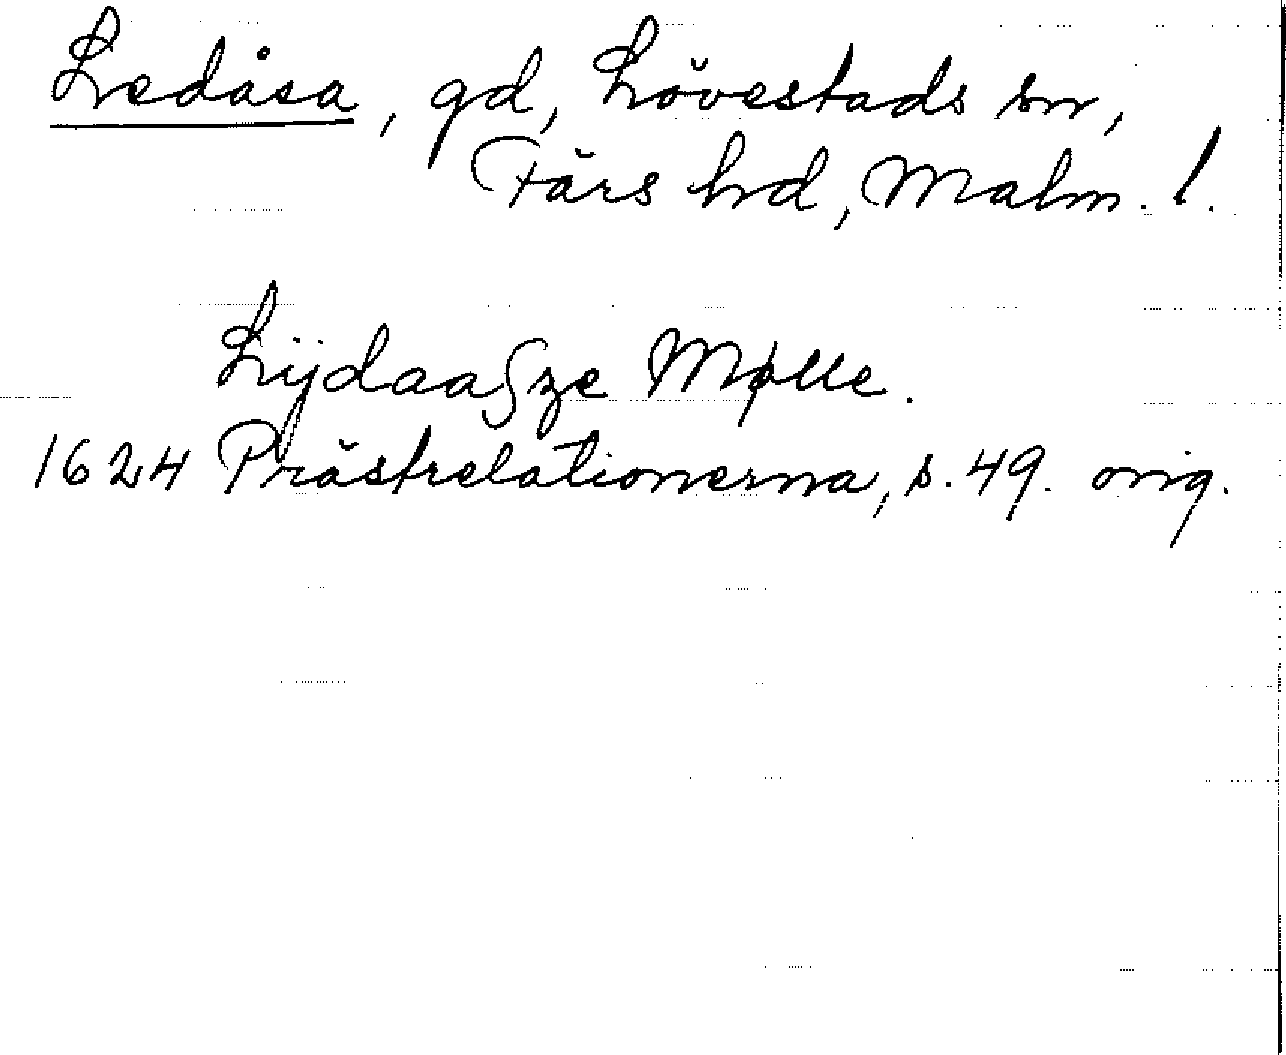 Ledåsa, gd, Lövestads sn,
Färs hd, Malm. l.
Lÿdaaſze Mølle.
1624 Prästrelationerna, s. 49. orig.